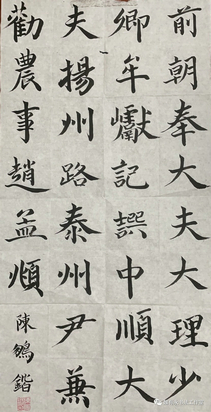 前朝奉大夫大理少
卿牟巘記譔中順大
夫揚州路泰州尹兼
勸農事趙孟頫
陳鸲鍇